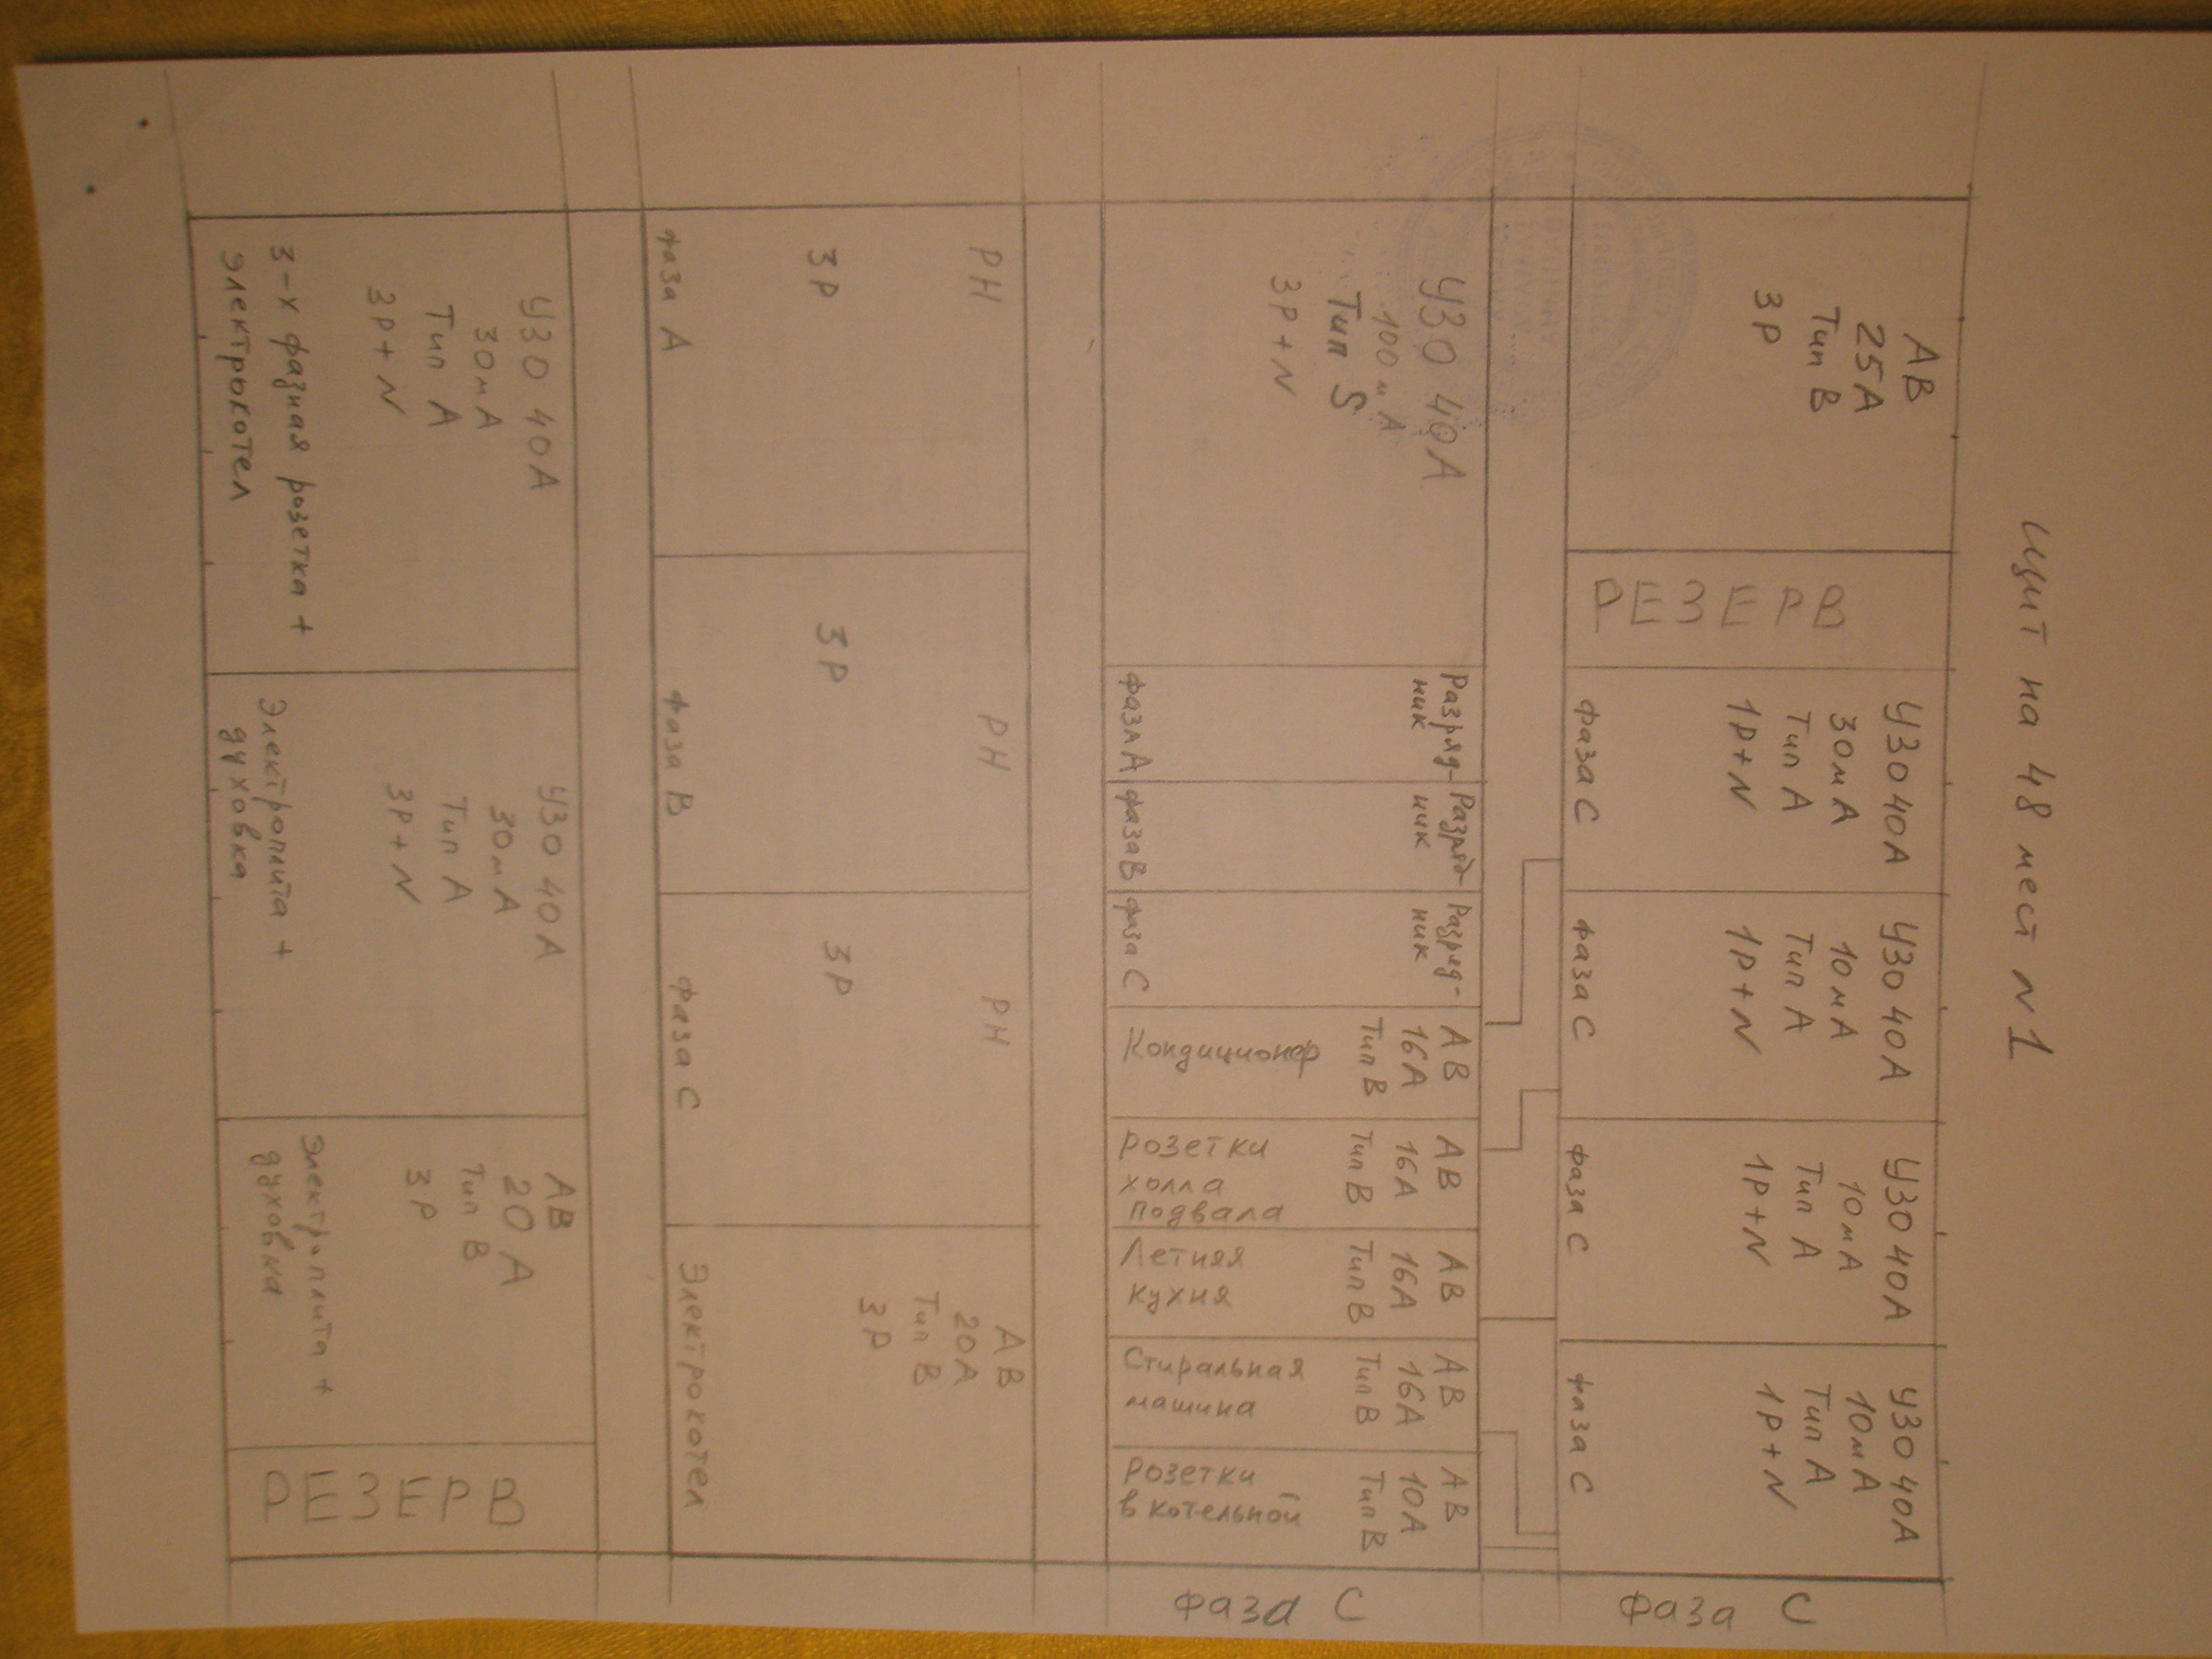 Щит на 48 мест №1
АВ
25А
Тип В
3Р
РЕЗЕРВ
УЗО 40А
30мА
Тип А
1Р+N
фаза С
УЗО 40А
10мА
Тип А
1Р+N
фаза С
УЗО 40А
10мА
Тип А
1Р+N
фаза С
УЗО 40А
10мА
Тип А
1Р+N
фаза С
фаза С
УЗО 40А
100мА
Тип S
3Р+N
Разряд-
ник
фаза А
Разряд-
ник
фаза В
Разряд-
ник
фаза С
АВ
16А
Тип В
Кондиционер
АВ
16А
Тип В
розетки
холла
подвала
АВ
16А
Тип В
Летняя
кухня
АВ
16А
Тип В
Стиральная
машина
АВ
10А
Тип В
розетки
в котельной
фаза С
РН
3Р
фаза А
РН
3Р
фаза В
РН
3Р
фаза С
АВ
20А
Тип В
3Р
Электрокотел
УЗО 40А
30мА
Тип А
3Р+N
3-х фазная розетка +
электрокотел
УЗО 40А
30мА
Тип А
3Р+N
Электроплита +
духовка
АВ
20А
Тип В
3Р
Электроплита +
духовка
РЕЗЕРВ